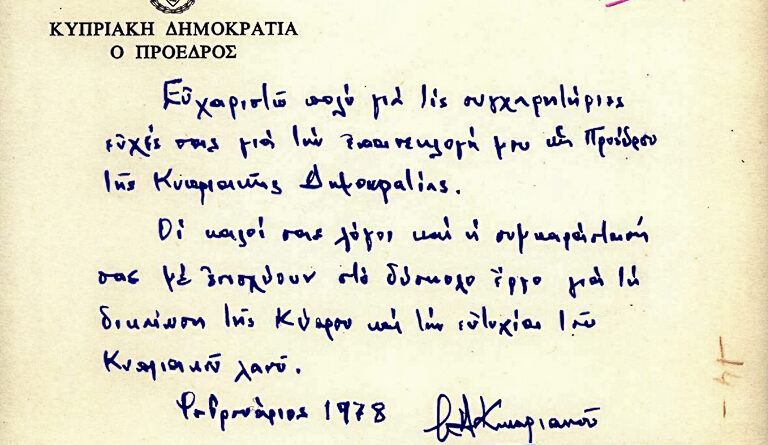 ΚΥΠΡΙΑΚΗ ΔΗΜΟΚΡΑΤΙΑ
Ο ΠΡΟΕΔΡΟΣ
Εὐχαριστῶ πολύ γιά τίς συγχαρητήριες
εὐχές σας γιά τήν ἐπανεκλογή μου ὡς Προέδρου
τῆς Κυπριακῆς Δημοκρατίας.
Οἱ καλοί σας λόγοι καί ἡ συμπαράστασή
σας μέ ἐνισχύουν στό δύσκολο ἔργο γιά τή
δικαίωση τῆς Κύπρου καί τήν εὐτυχία τοῦ
Κυπριακοῦ λαοῦ.
Φεβρουάριος 1978 Σ. Α. Κυπριανοῦ